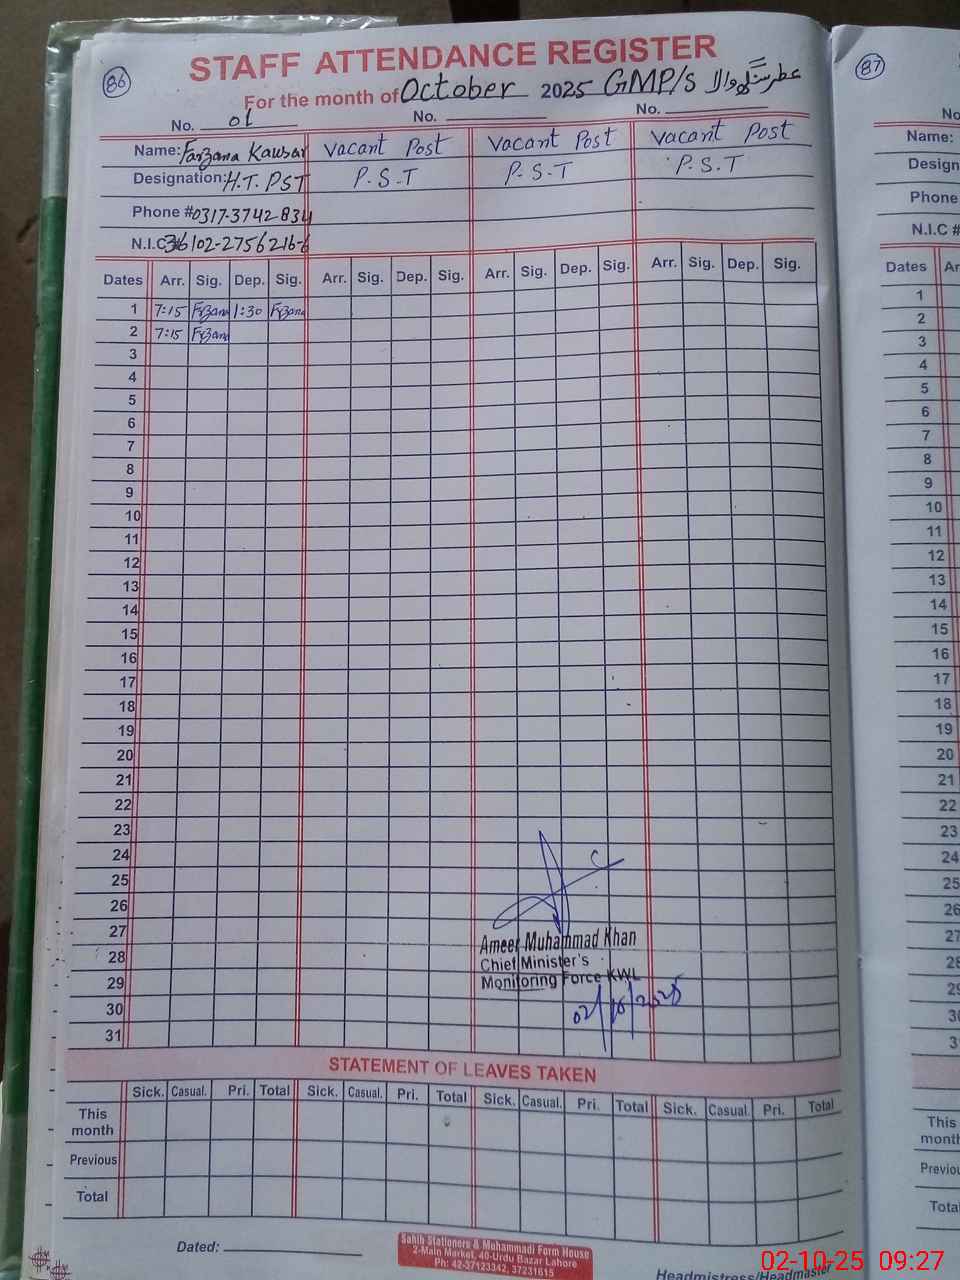 86
STAFF ATTENDANCE REGISTER
For the month of October 2025 GMP/S
No. 01 No. No.
Name: Farzana Kausar Vacant Post Vacant Post Vacant Post
Designation: H.T. PST P.S.T P.S.T P.S.T
Phone # 0317-3742-834
N.I.C # 36102-2756216-6
Dates Arr. Sig. Dep. Sig. Arr. Sig. Dep. Sig. Arr. Sig. Dep. Sig. Arr. Sig. Dep. Sig.
1 7:15 Frzana 1:30 Frzana
2 7:15 Frzana
3
4
5
6
7
8
9
10
11
12
13
14
15
16
17
18
19
20
21
22
23
24
25
26
27
28
29
30
31
Ameer Muhammad Khan
Chief Minister's
Monitoring Force KWL
02/10/2025
STATEMENT OF LEAVES TAKEN
Sick. Casual. Pri. Total Sick. Casual. Pri. Total Sick. Casual. Pri. Total Sick. Casual. Pri. Total
This month
Previous
Total
Dated:
Sahib Stationers & Muhammadi Form House
2-Main Market, 40-Urdu Bazar Lahore
Ph: 42-37123342, 37231615
Headmistress/Headmaster
87
No
Name:
Design
Phone
N.I.C #
Dates Ar
1
2
3
4
5
6
7
8
9
10
11
12
13
14
15
16
17
18
19
20
21
22
23
24
25
26
27
28
29
30
3
This
month
Previou
Tota
02-10-25 09:27